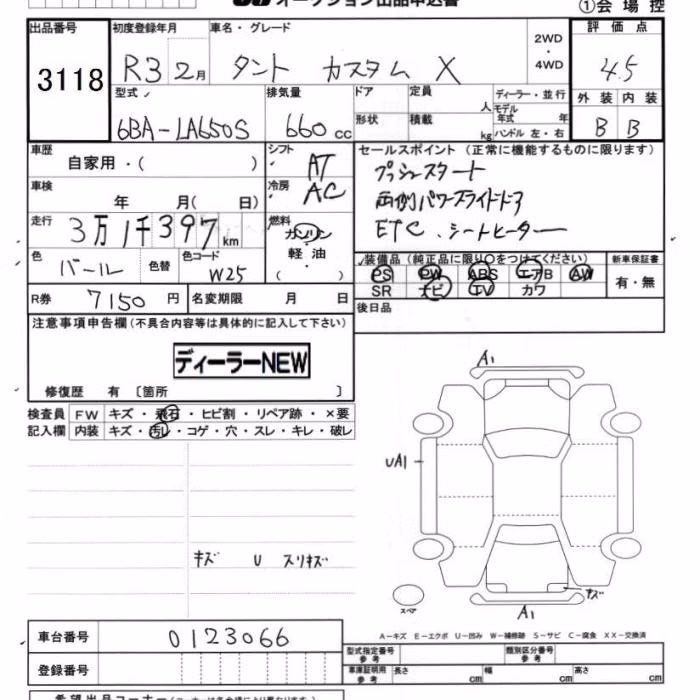 オークション出品申込書
①会場控
出品番号
3118
初度登録年月
R3 2月
車名・グレード
タント カスタム X
2WD
・
4WD
評価点
4.5
型式
6BA-LA650S
排気量
660 cc
ドア
形状
定員
人
積載
kg
ディーラー・並行
モデル
年式 年
ハンドル 左・右
外装 内装
B B
車歴
自家用・( )
シフト
AT
車検
年 月( 日)
冷房
AC
走行
3万1千397km
燃料
ガソリン
軽・油
( )
色
パール
色替
色コード
W25
R券 7150円
名変期限 月 日
セールスポイント(正常に機能するものに限ります)
プッシュスタート
両側パワースライドドア
ETC.シートヒーター
装備品(純正品に限り○をつけてください)
PS PW ABS エアB AW
SR ナビ TV カワ
新車保証書
有・無
後日品
注意事項申告欄(不具合内容等は具体的に記入して下さい)
ディーラーNEW
修復歴 有 〔箇所 〕
検査員 FW キズ・飛石・ヒビ割・リペア跡・×要
記入欄 内装 キズ・汚レ・コゲ・穴・スレ・キレ・破レ
キズ U スリキズ
A1
UA1
キズ
スペア
A1
A-キズ E-エクボ U-凹み W-補修跡 S-サビ C-腐食 XX-交換済
車台番号 0123066
登録番号
型式指定番号
参考
類別区分番号
参考
車庫証明用
参考
長さ cm 幅 cm 高さ cm
希望出品コーナー